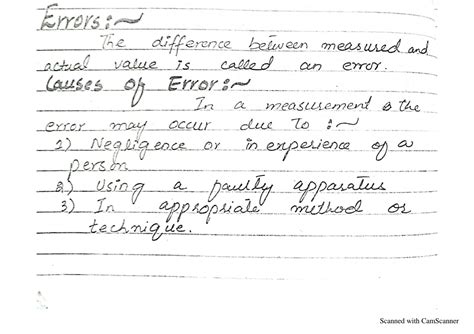 Errors:~
The difference between measured and
actual value is called an error.
Causes of Error:~
In a measurement the
error may occur due to :~
1) Negligence or in experience of a
person
2) Using a faulty apparatus
3) In appropriate method or
technique.
Scanned with CamScanner